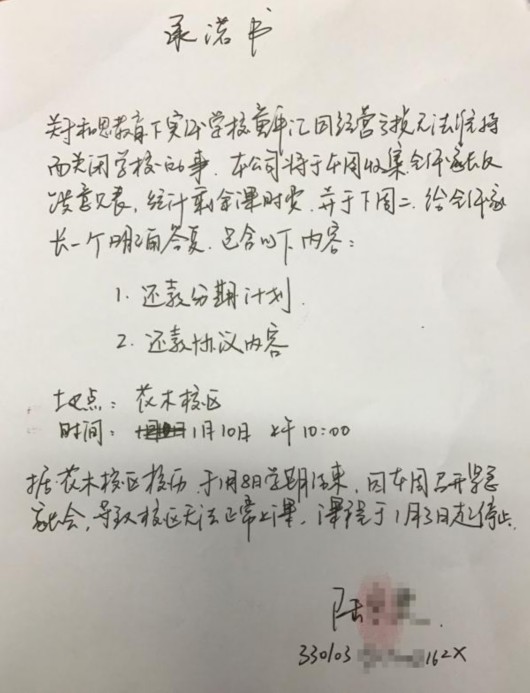 承诺书
关于和思教育下实体学校黄浦汇因经营亏损无法维持
而关闭学校的事，本公司将于本周收集全体家长反
馈意见表，统计剩余课时费，并于下周二，给全体家
长一个明确答复，包含以下内容：
1. 还款分期计划
2. 还款协议内容
地点：花木校区
时间：1月10日 上午10:00
据花木校区校历，于1月8日学期结束，因本周召开紧急
家长会，导致校区无法正常上课，课程于1月3日起停止.
陆
330103 162X